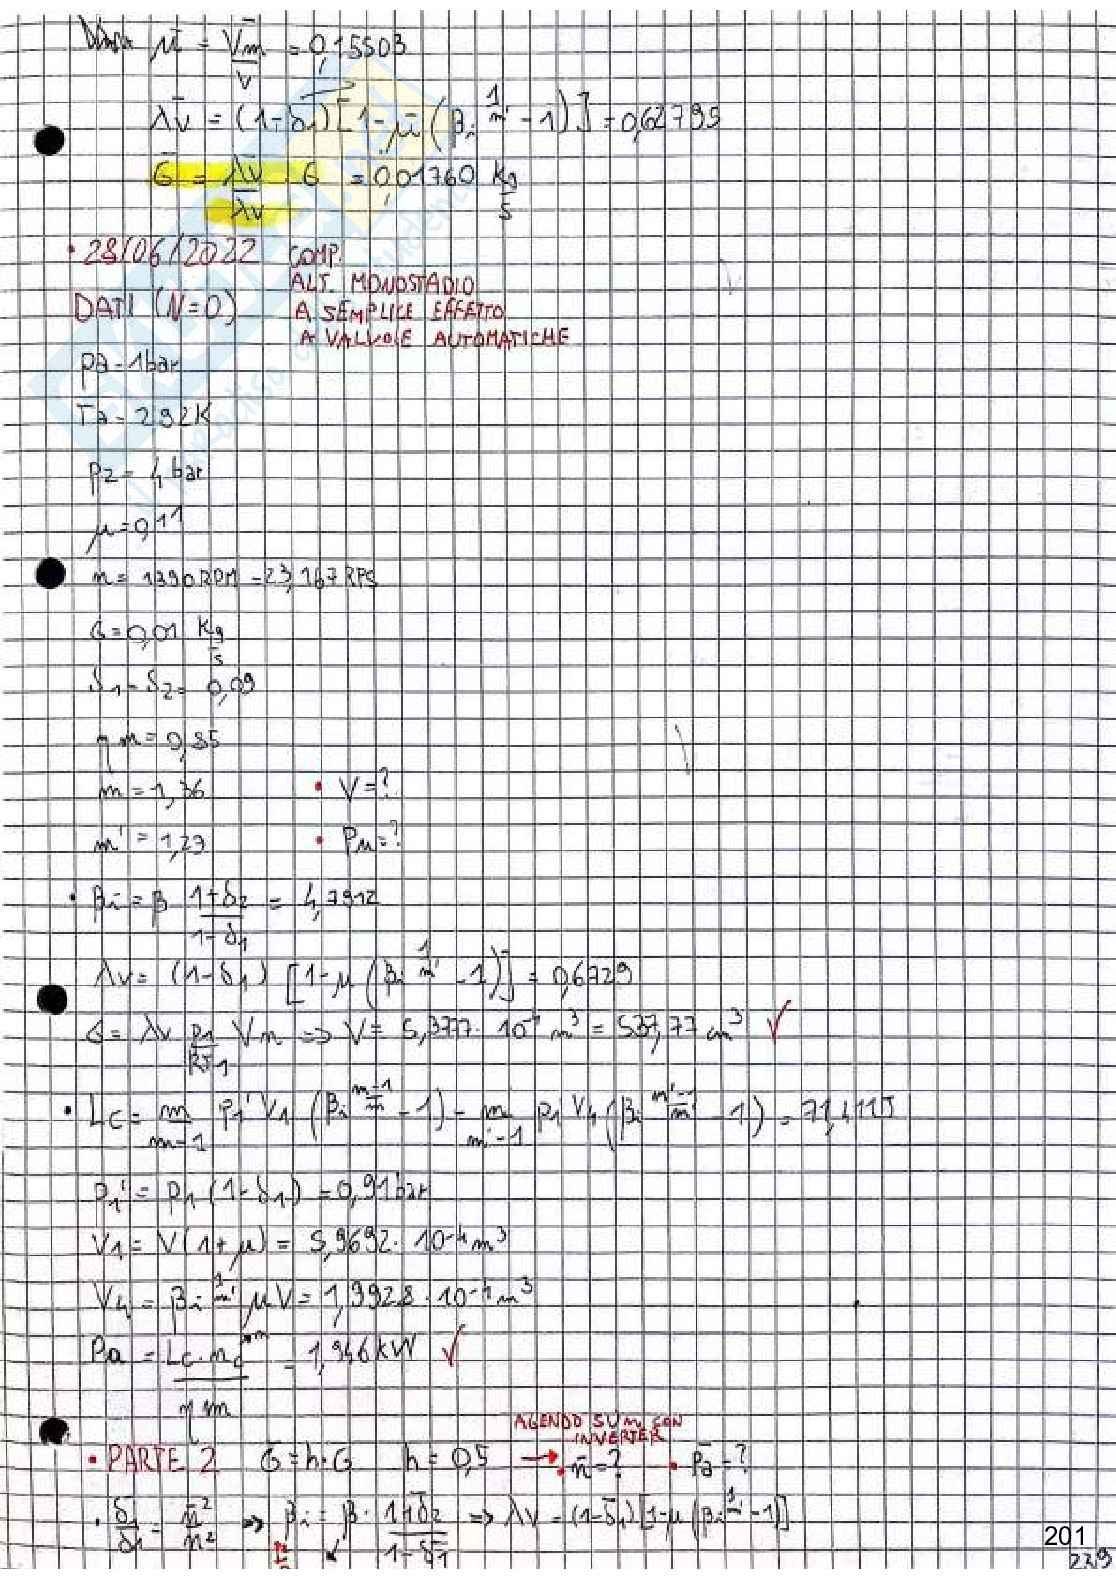 μ̄ = V̄m/V = 0,15503
λ̄v = (1-δ̄1)[1-μ̄(βi^(1/m') -1)] = 0,62795
Ḡ = λ̄v/λv · G = 0,01760 Kg/s
• 28/06/2022 COMP.
ALT. MONOSTADIO
DATI (N=0) A SEMPLICE EFFETTO
A VALVOLE AUTOMATICHE
pa = 1bar
Ta = 292K
p2 = 4 bar
μ = 0,11
n = 1390 RPM = 23,167 RPS
G = 0,01 Kg/s
δ1 = δ2 = 0,09
ηm = 0,85
m = 1,36 • V = ?
m' = 1,29 • Pa = ?
• βi = β (1+δ2)/(1-δ1) = 4,7912
λv = (1-δ1) [1-μ(βi^(1/m') -1)] = 0,6729
G = λv p1/(RT1) V n => V = 5,3777 · 10^-4 m³ = 537,77 cm³ ✓
• Lc = m/(m-1) p1' V1 (βi^((m-1)/m) -1) - m'/(m'-1) p1' V4 (βi^((m'-1)/m') -1) = 71,411J
p1' = p1 (1-δ1) = 0,91bar
V1 = V(1+μ) = 5,9692 · 10^-4 m³
V4 = βi^(1/m') μV = 1,9928 · 10^-4 m³
Pa = Lc · n/ηm = 1,946kW ✓
AGENDO SU n CON
INVERTER
• PARTE 2 Ḡ = h·G h = 0,5 → • n̄ = ? • P̄a = ?
• δ̄1/δ1 = n̄²/n² => βi = β · (1+δ̄2)/(1-δ̄1) => λv = (1-δ̄1) · [1-μ(βi^(1/m') -1)]
201
239